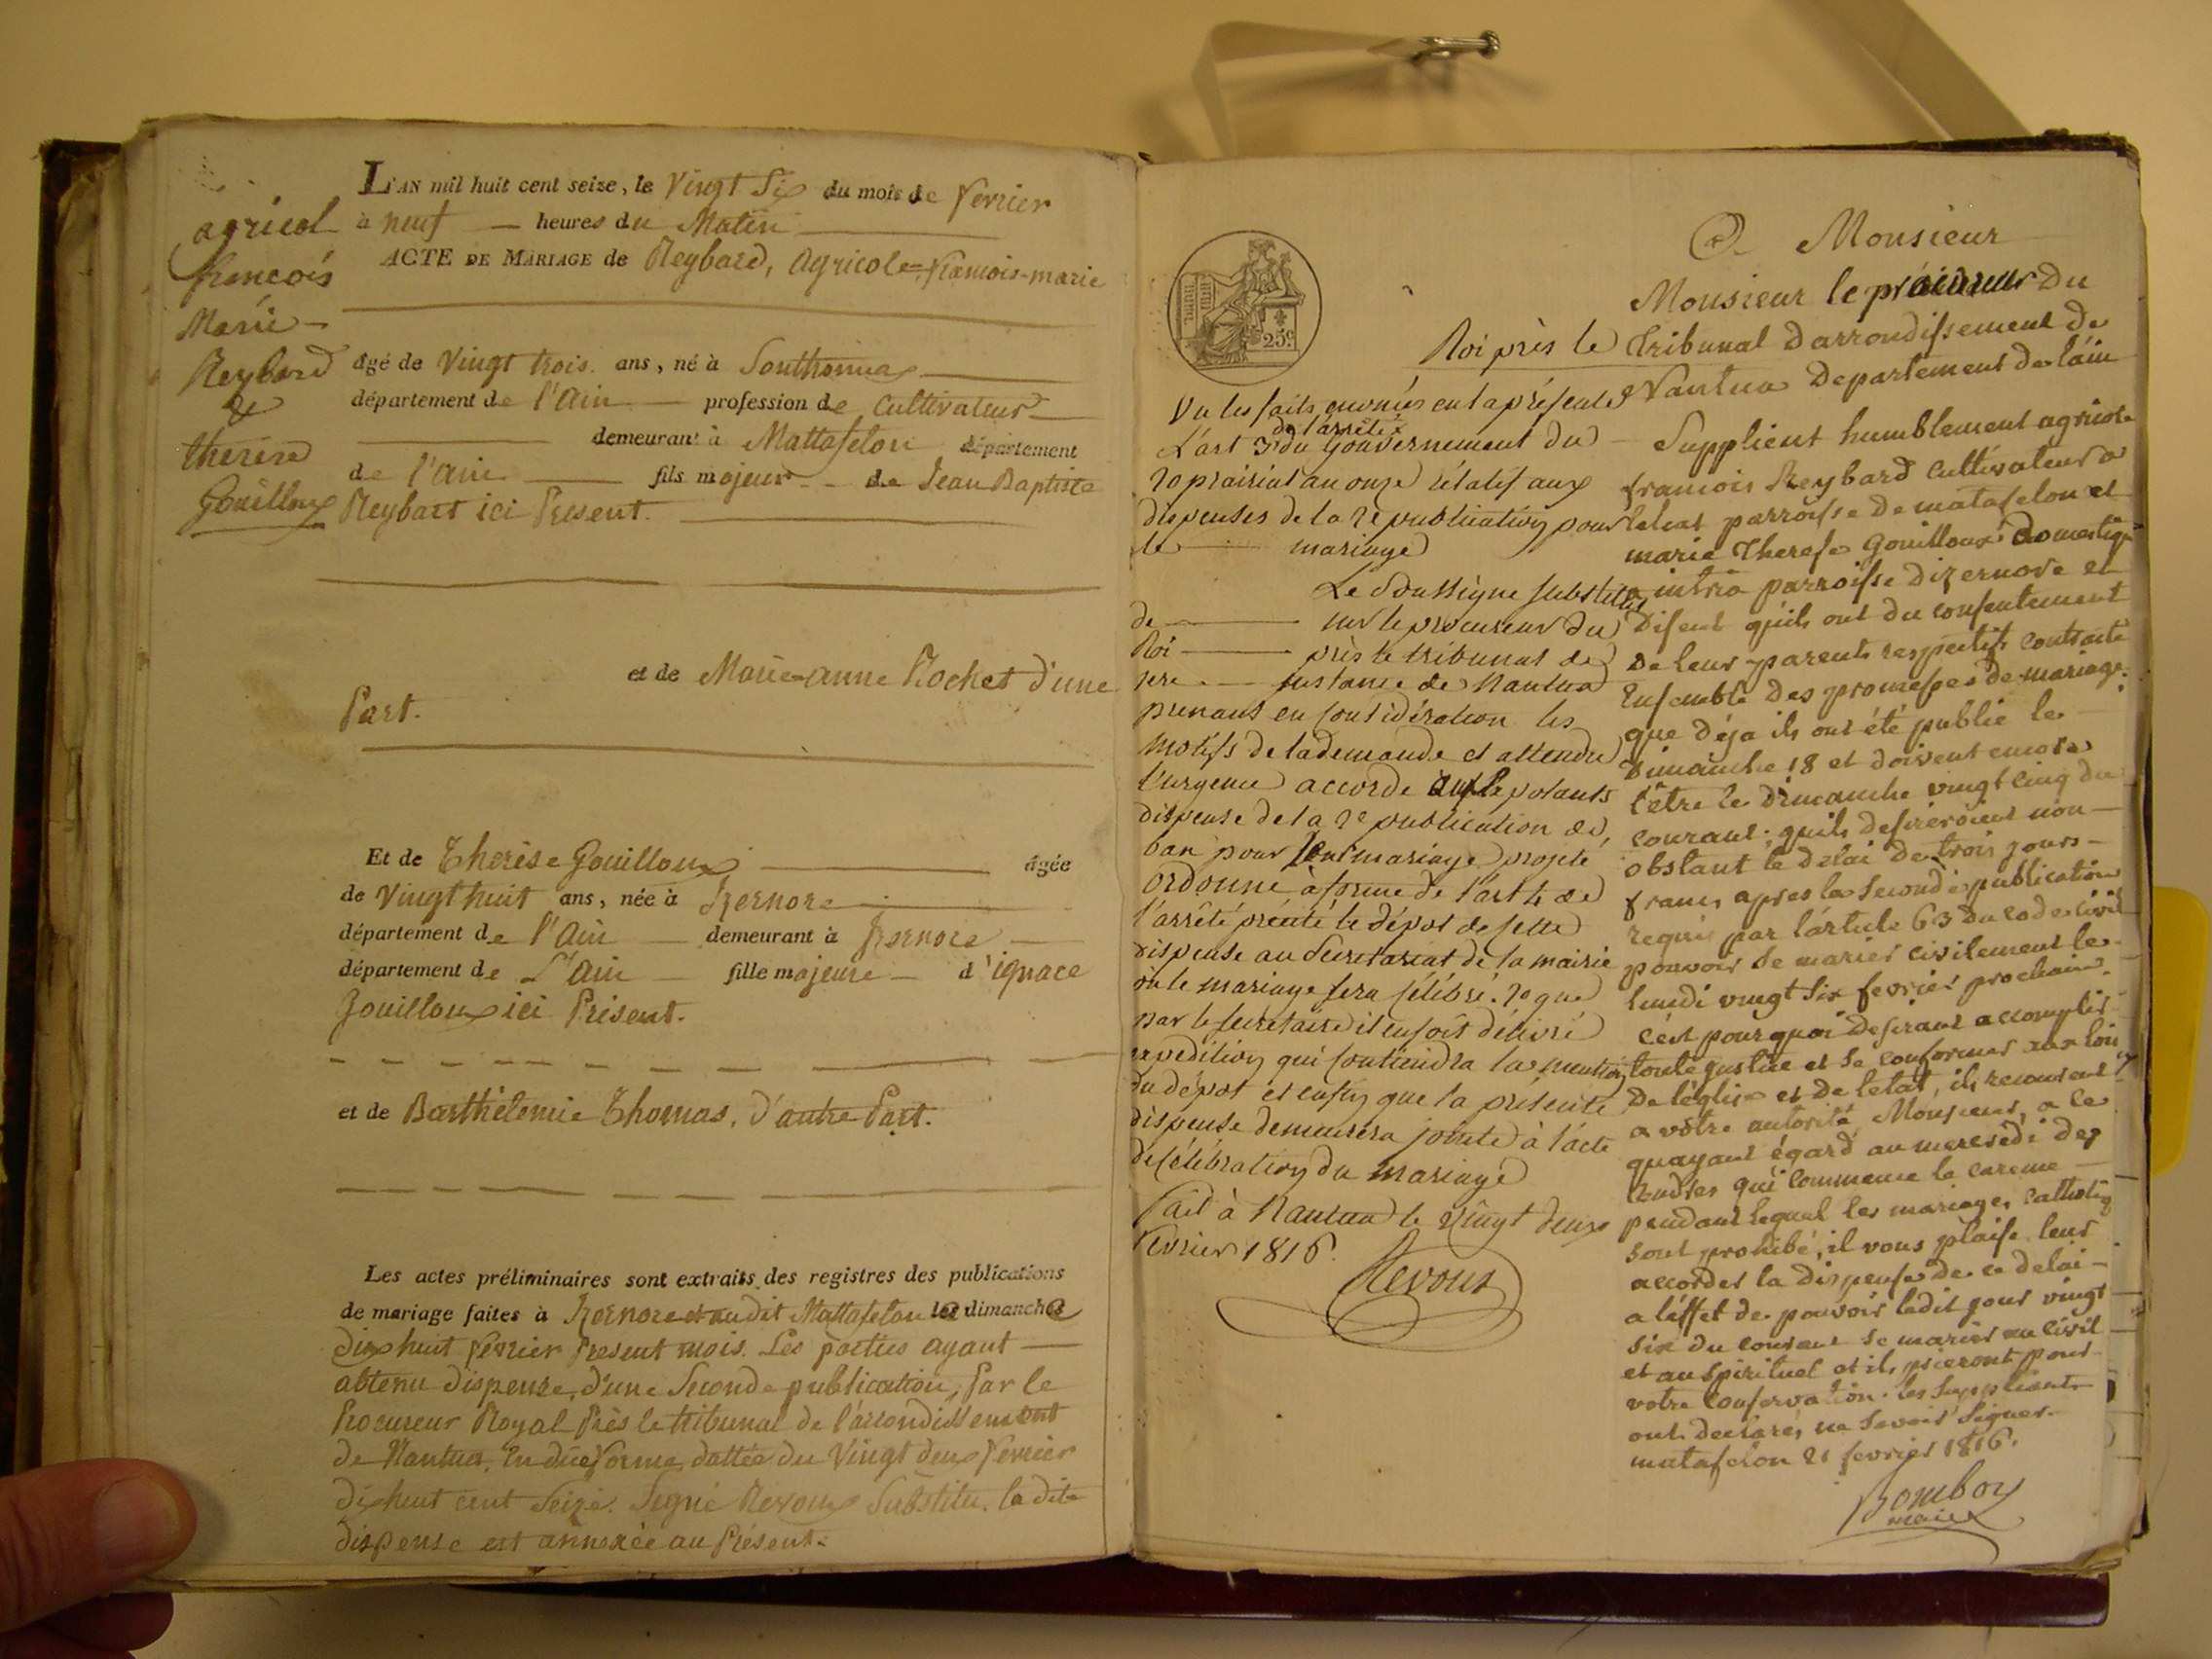 agricol
françois
Marie
Reybard
&
thérèse
Gouilloux
L'AN mil huit cent seize, le Vingt Six du mois de fevrier
à neuf heures du Matin
ACTE DE MARIAGE de Reybard, Agricole=françois-marie
âgé de Vingt trois ans, né à Sonthonnax
département de l'Ain profession de Cultivateur
demeurant à Mattafelon département
de l'Ain fils majeur de Jean Baptiste
Reybart ici Present.
et de Marie-anne Rochet d'une
Part.
Et de Therèse Gouilloux âgée
de Vingt huit ans, née à Izernore
département de l'Ain demeurant à Izernore
département de L'Ain fille majeure d'ignace
Gouilloux ici Présent.
et de Barthélemie Thomas, d'autre Part.
Les actes préliminaires sont extraits des registres des publications
de mariage faites à Izernore et audit Mattafelon le dimanche
dix huit fevrier Present mois. Les parties ayant
abtenu dispense, d'une Seconde publication, Par le
Procureur Royal Près le tribunal de l'arrondissement
de Nantua, En düe forme dattée du Vingt deux fevrier
dix huit cent Seize. Signé Revoux Substitu. la dite
dispense est annexée au Présent.
25 c.
Vu les faits enoncés en la présente
L'art 3 de l'arrêté du Gouvernement du
20 prairial an onze rélatif aux
dispenses de la 2e publication pour
le mariage
Le Soussigné substitut
de mr le procureur du
Roi près le tribunal de
1ere instance de Nantua
prenant en considération les
motifs de la demande et attendu
l'urgence accorde aux exposants
dispense de la 2e publication de
ban pour leur mariage projeté
ordonne à forme de l'art 4 de
l'arrêté précité le dépot de sette
dispense au Secretariat de la mairie
où le mariage sera sélébré. 2o que
par le secretaire il en soit délivré
expedition qui contiendra la mention
du dépot et enfin que la présente
dispense demeurera jointe à l'acte
de célébration du mariage
fait à Nantua le vingt deux
fevrier 1816.
Revoux
A Monsieur
Monsieur le procureur du
Roi près le Tribunal darrondissement de
Nantua Departement de l'ain
Supplient humblement agricole
francois Reybard Cultivateur a
parroisse de matafelon et
marie Therese Gouilloux domestique
a intria parroisse dizernore et
Disent quils ont du consentement
de leur parents respectifs contracté
Ensemble des promesses de mariage.
que déja ils ont été publié le
Dimanche 18 et doivent encore
l'être le dimanche vingt cinq du
courant; quils desireroient non
obstant le delai de trois jours
francs apres la seconde publication
requis par l'article 63 du code civil
pouvoir se marier civilement le
lundi vingt six fevrier prochain.
C'est pourquoi desirant accomplir
toute justice et se conformer aux lois
de l'église et de l'etat, ils recourent
a vôtre autorité, Monsieur, a ce
quayant égard au mercredi des
Cendres qui commence le careme
pendant lequel les mariages catholiq
sont prohibé, il vous plaise leur
accorder la dispense de ce delai
a l'effet de pouvoir ledit jour vingt
six du courant se marier au civil
et au spirituel et ils prieront pour
votre conservation. les suppliants
ont declarés ne savoir signer.
matafelon 21 fevrier 1816.
Bomboy
maire